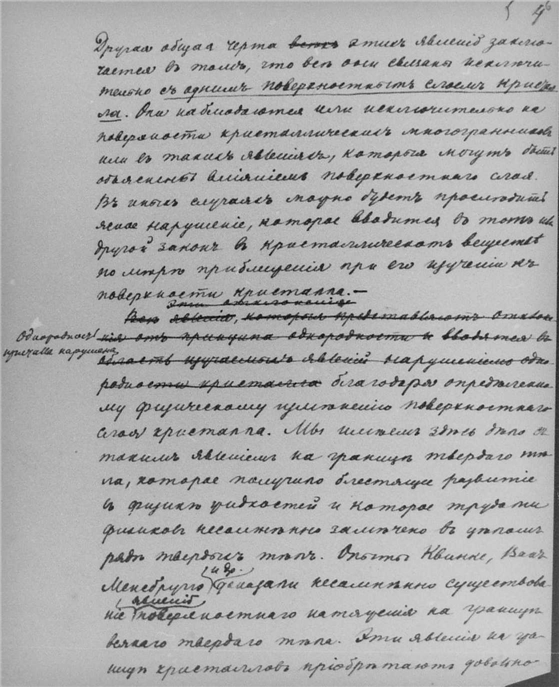 4
Другая общая черта всѣхъ этихъ явленій заклю-
чается въ томъ, что всѣ они связаны исключи-
тельно съ однимъ поверхностнымъ слоемъ кристал-
ла. Они наблюдаются или исключительно на
поверхности кристаллическихъ многогранниковъ
или въ такихъ явленіяхъ, которыя могутъ быть
объяснены вліяніемъ поверхностнаго слоя.
Въ иныхъ случаяхъ можно будетъ прослѣдить
ясное нарушеніе, которое вводится въ тотъ или
другой законъ въ кристаллическомъ веществѣ
по мѣрѣ приближенія при его изученіи къ
поверхности кристалла.—
Эти отклоненія
Всѣ явленія, которыя представляютъ отклоне-
нія отъ принципа однородности и вводятся въ
Однородность
нарушена
область изучаемыхъ явленій нарушеніемъ одно-
родности кристалла благодаря опредѣленно-
му физическому измѣненію поверхностнаго
слоя кристалла. Мы имѣемъ здѣсь дѣло съ
такимъ явленіемъ на границѣ твердаго тѣ-
ла, которое получило блестящее развитіе
въ физикѣ жидкостей и которое трудами
физиковъ несомнѣнно замѣчено въ цѣломъ
рядѣ твердыхъ тѣлъ. Опыты Квинке,
и др.
Менсбругге доказали несомнѣнно существова-
явленій
ніе поверхностнаго натяженія на границѣ
всякаго твердаго тѣла. Эти явленія на гра-
ницѣ кристалловъ пріобрѣтаютъ довольно